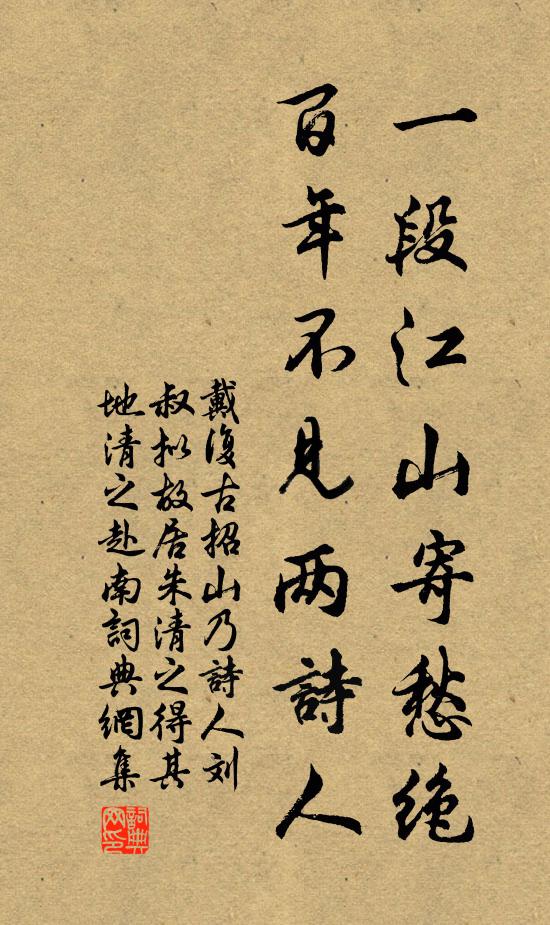 一段江山寄愁绝
百年不见两詩人
戴復古招山乃詩人刘
叔拟故居朱清之得其
地清之赴南詞典網集
詞典网印